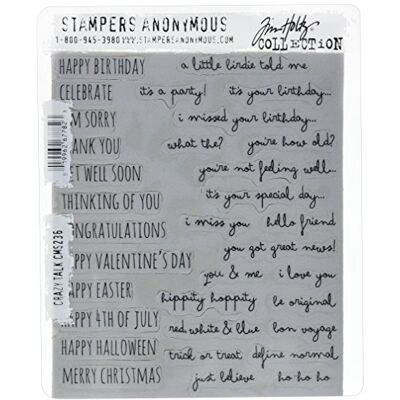 STAMPERS ANONYMOUS
1-800-945-3980 WWW.STAMPERSANONYMOUS.COM
Tim Holtz
COLLECTION
HAPPY BIRTHDAY a little birdie told me
CELEBRATE it's a party! it's your birthday...
I'M SORRY i missed your birthday...
THANK YOU what the? you're how old?
GET WELL SOON you're not feeling well...
THINKING OF YOU it's your special day...
CONGRATULATIONS i miss you hello friend
you got great news!
HAPPY VALENTINE'S DAY you & me i love you
HAPPY EASTER hippity hoppity be original
HAPPY 4TH OF JULY red white & blue bon voyage
HAPPY HALLOWEEN trick or treat define normal
MERRY CHRISTMAS just believe ho ho ho
CRAZY TALK CMS236